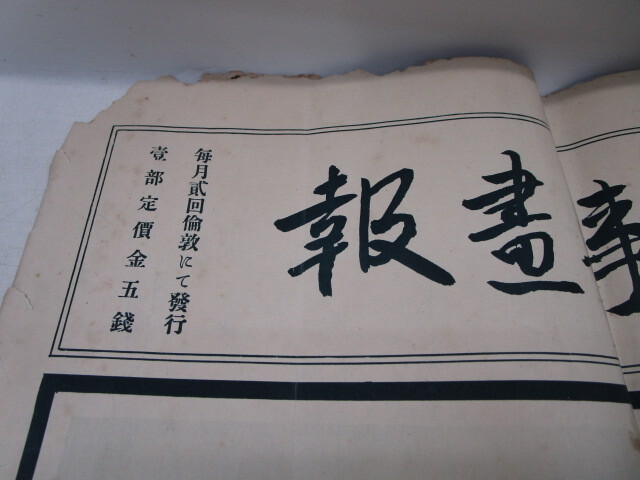 事畫報
每月貳回倫敦にて發行
壹部定價金五錢